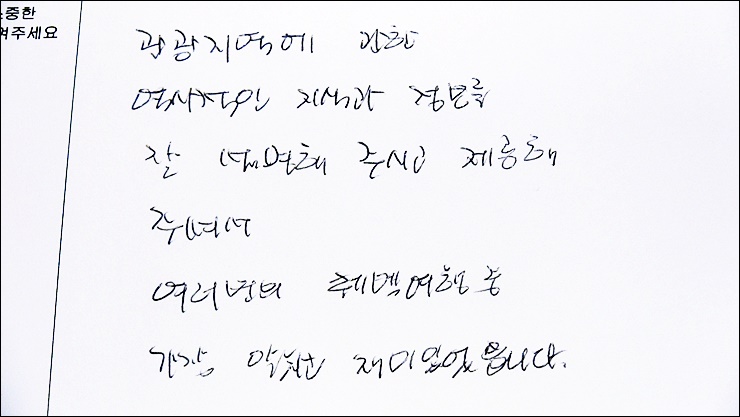 소중한
겨주세요
관광지역에 관한
역사적인 지식과 정보를
잘 설명해 주시고 제공해
주셔서
여러번의 패키지여행 중
가장 알차고 재미있었습니다.